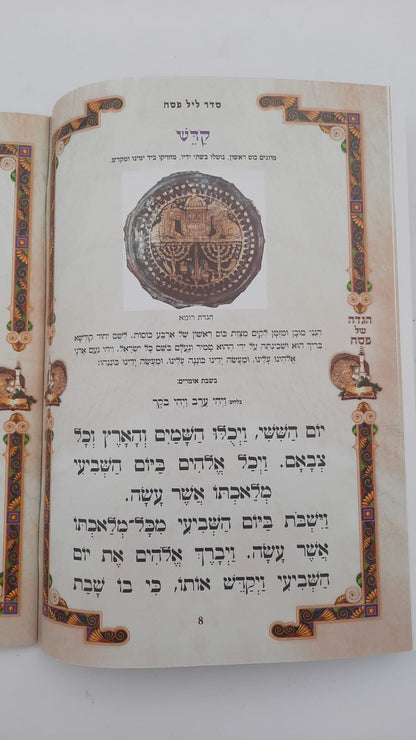 סדר ליל פסח
קַדֵּשׁ
מוזגים כוס ראשון, נוטלו בשתי ידיו, מחזיקו ביד ימינו ומקדש.
הגדת רומא
הִנְנִי מוּכָן וּמְזֻמָּן לְקַיֵּם מִצְוַת כּוֹס רִאשׁוֹן שֶׁל אַרְבַּע כּוֹסוֹת. לְשֵׁם יִחוּד קוּדְשָׁא
בְּרִיךְ הוּא וּשְׁכִינְתֵּהּ עַל יְדֵי הַהוּא טָמִיר וְנֶעְלָם בְּשֵׁם כָּל יִשְׂרָאֵל. וִיהִי נֹעַם אֲדֹנָי
אֱלֹהֵינוּ עָלֵינוּ, וּמַעֲשֵׂה יָדֵינוּ כּוֹנְנָה עָלֵינוּ, וּמַעֲשֵׂה יָדֵינוּ כּוֹנְנֵהוּ:
בשבת אומרים:
בלחש: וַיְהִי עֶרֶב וַיְהִי בֹקֶר
יוֹם הַשִּׁשִּׁי, וַיְכֻלּוּ הַשָּׁמַיִם וְהָאָרֶץ וְכָל
צְבָאָם. וַיְכַל אֱלֹהִים בַּיּוֹם הַשְּׁבִיעִי
מְלַאכְתּוֹ אֲשֶׁר עָשָׂה.
וַיִּשְׁבֹּת בַּיּוֹם הַשְּׁבִיעִי מִכָּל־מְלַאכְתּוֹ
אֲשֶׁר עָשָׂה. וַיְבָרֶךְ אֱלֹהִים אֶת יוֹם
הַשְּׁבִיעִי וַיְקַדֵּשׁ אוֹתוֹ, כִּי בוֹ שָׁבַת
8
הגדה
של
פסח